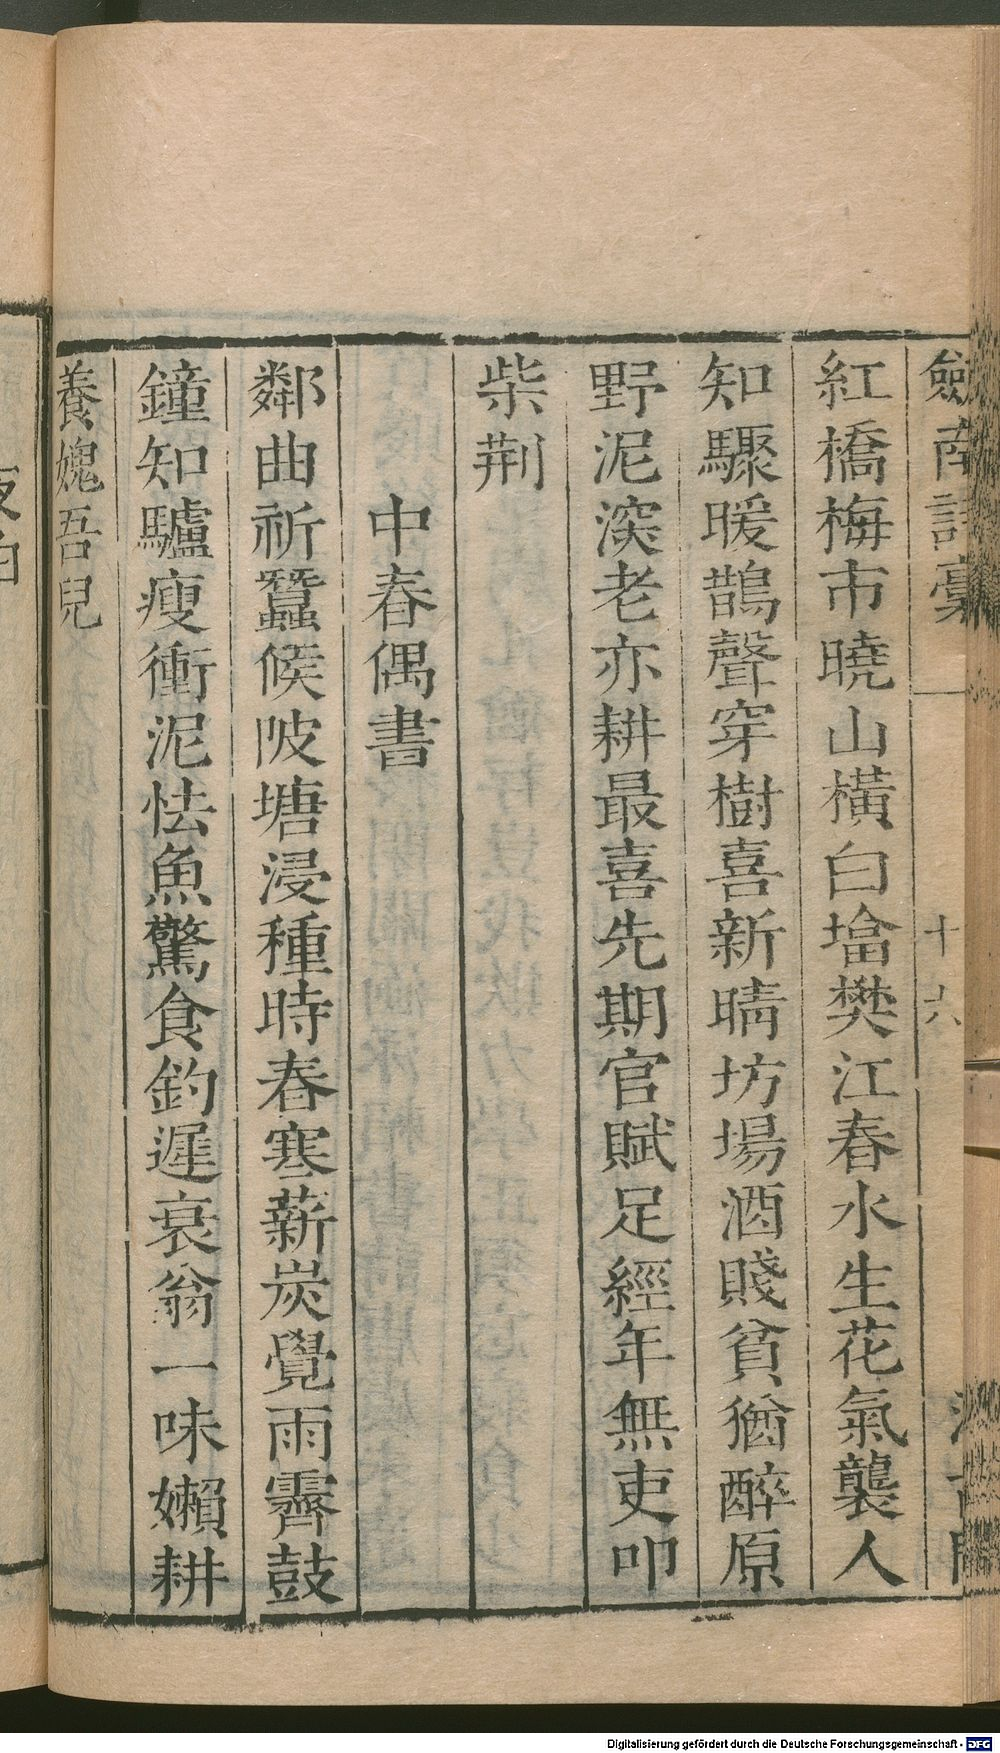 劒南詩稾
十六
紅橋梅市曉山橫白墖樊江春水生花氣襲人
知驟暖鵲聲穿樹喜新晴坊場酒賤貧猶醉原
野泥深老亦耕最喜先期官賦足經年無吏叩
柴荆
中春偶書
鄰曲祈蠶候陂塘浸種時春寒薪炭覺雨霽鼓
鐘知驢瘦衝泥怯魚驚食釣遲衰翁一味嬾耕
養媿吾兒
Digitalisierung gefördert durch die Deutsche Forschungsgemeinschaft - DFG